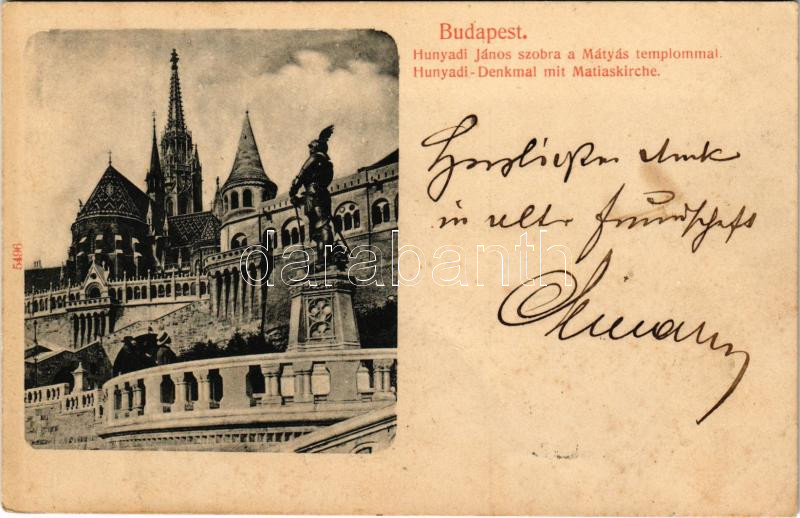 Budapest.
Hunyadi János szobra a Mátyás templommal.
Hunyadi-Denkmal mit Matiaskirche.
Herzlichsten Dank
in alter Freundschaft
5496
darabanth